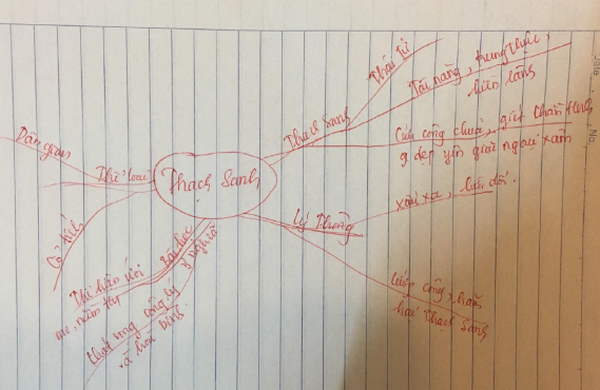 Thạch Sanh
Thạch Sanh
Thái Tử
Tài năng, trung thực,
hiền lành
Cứu công chúa, giết chằn tinh
dẹp yên giặc ngoại xâm
Lý Thông
xấu xa, lừa dối.
Cướp công, hãm
hại Thạch Sanh
Thể loại
Dân gian
Cổ tích
Bài học
ý nghĩa
Thể hiện
mơ, niềm tin
công lý
hòa bình